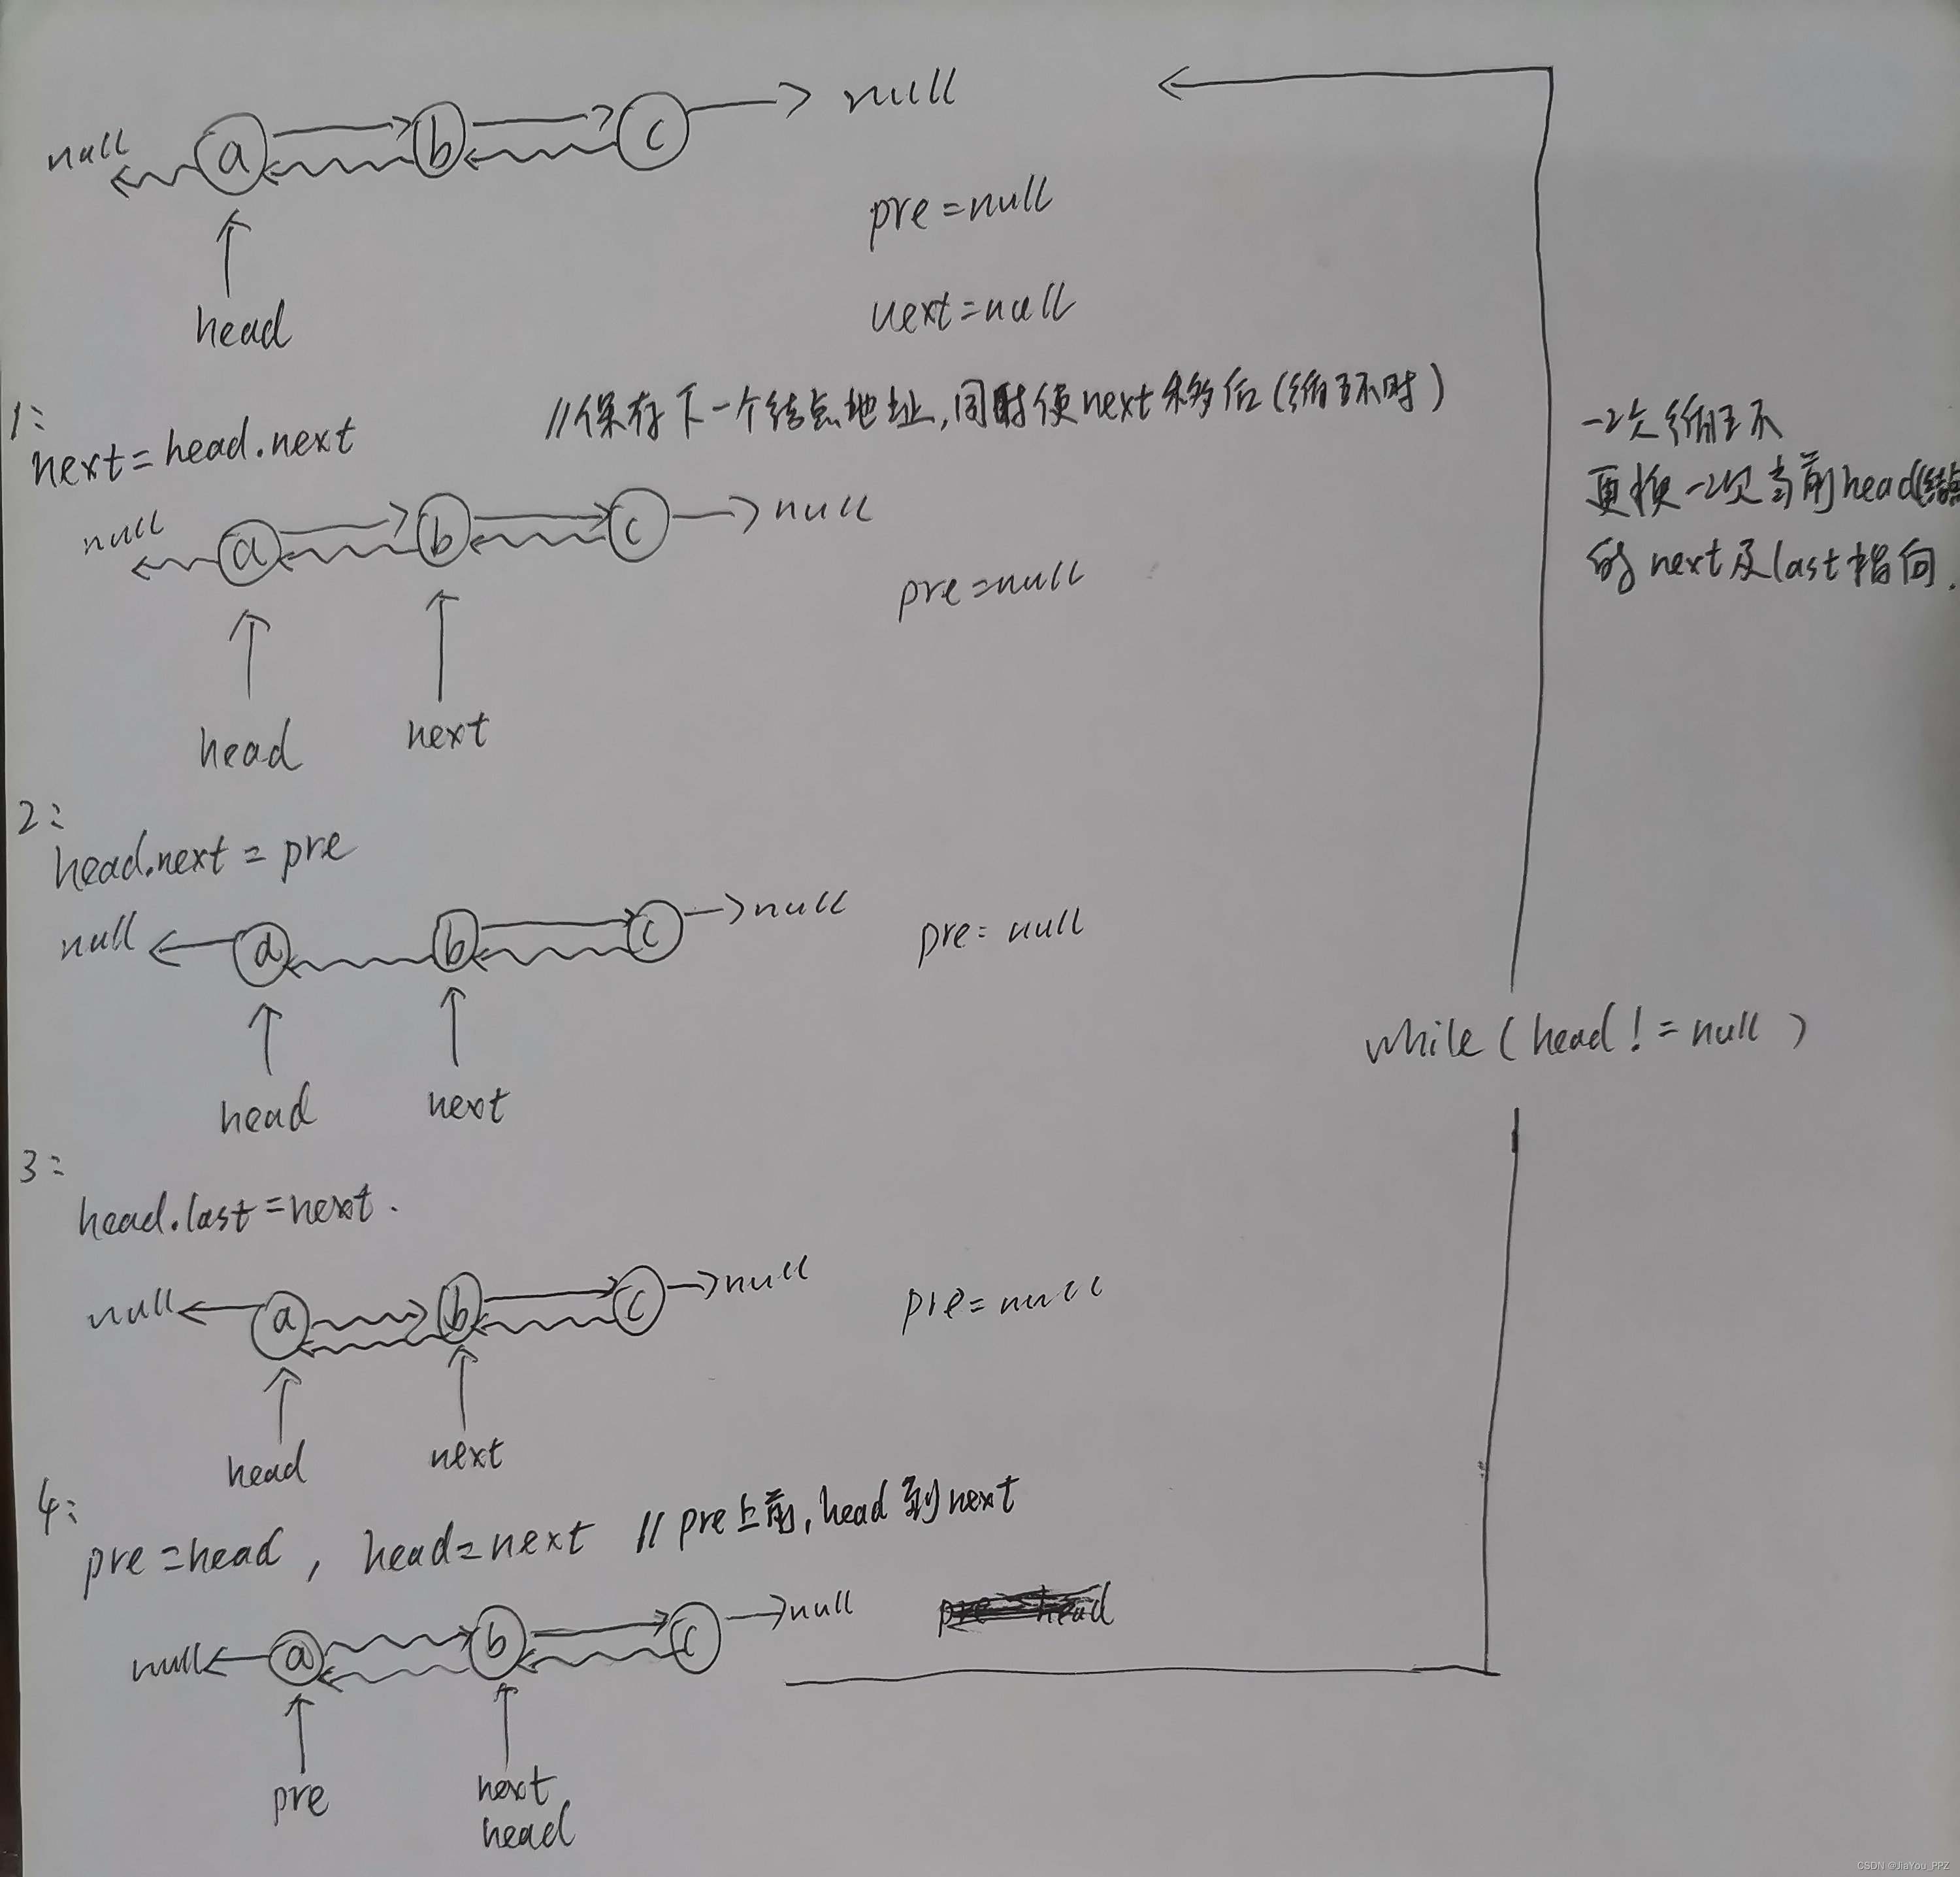 null a b c null
head
pre=null
next=null
1:
next=head.next //保存下一个结点地址,同时使next移后(循环时)
null a b c null
pre=null
head next
2:
head.next=pre
null a b c null
pre=null
head next
3:
head.last=next.
null a b c null
pre=null
head next
4:
pre=head, head=next //pre上前,head到next
null a b c null
pre
next
head
一次循环
更换一次当前head(结点
的next及last指向.
while(head!=null)
CSDN @JiaYou_PPZ